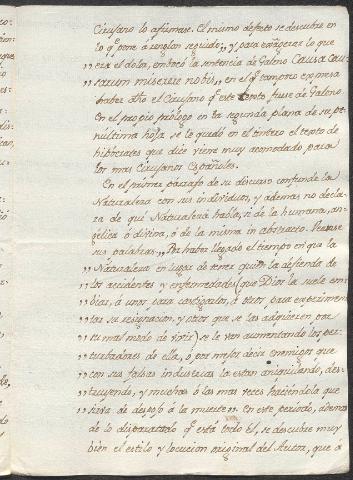 Cirujano lo afirmase. El mismo defecto se descubre en
lo qᵉ pone á renglon seguido; „ y para exâgerar lo que
„ era el dolor, embocó la sentencia de Galeno Causa cau-
„ sarum miserere nobis „ en el qᵉ tampoco expresa
haber dho el Cirujano qᵉ este texto fuese de Galeno.
En el propio prólogo en la segunda plana de su pe-
núltima hoja se le quedó en el tintero el texto de
hipócrates que dice viene muy acomodado para
los mas Cirujanos Españoles.
En el primer parrafo de su discurso confunde la
Naturaleza con sus individuos, y ademas no decla-
ra de qué Naturaleza habla, si de la humana, an-
gélica ó divina, ó de la misma in abstracto.
sus palabras. „ Por haber llegado el tiempo en que la
„ Naturaleza en lugar de tener quien la defienda de
„ los accidentes y enfermedades (que Dios la suele em-
„ biar, á unos para castigarlos, á otros para experimen-
„ tar su resignacion, y otros que se las adquieren por
„ su mal modo de vivir) se le van aumentando los per-
„ turbadores de ella, ó por mejor decir enemigos que
„ con sus falsas industrias la estan aniquilando, des-
„ truyendo, y muchas ó las mas veces haciendola que
„ sirva de despojo á la muerte „. En este periodo, ademas
de lo disparatado qᵉ está todo él, se descubre muy
bien el estilo y locucion original del Autor, que á